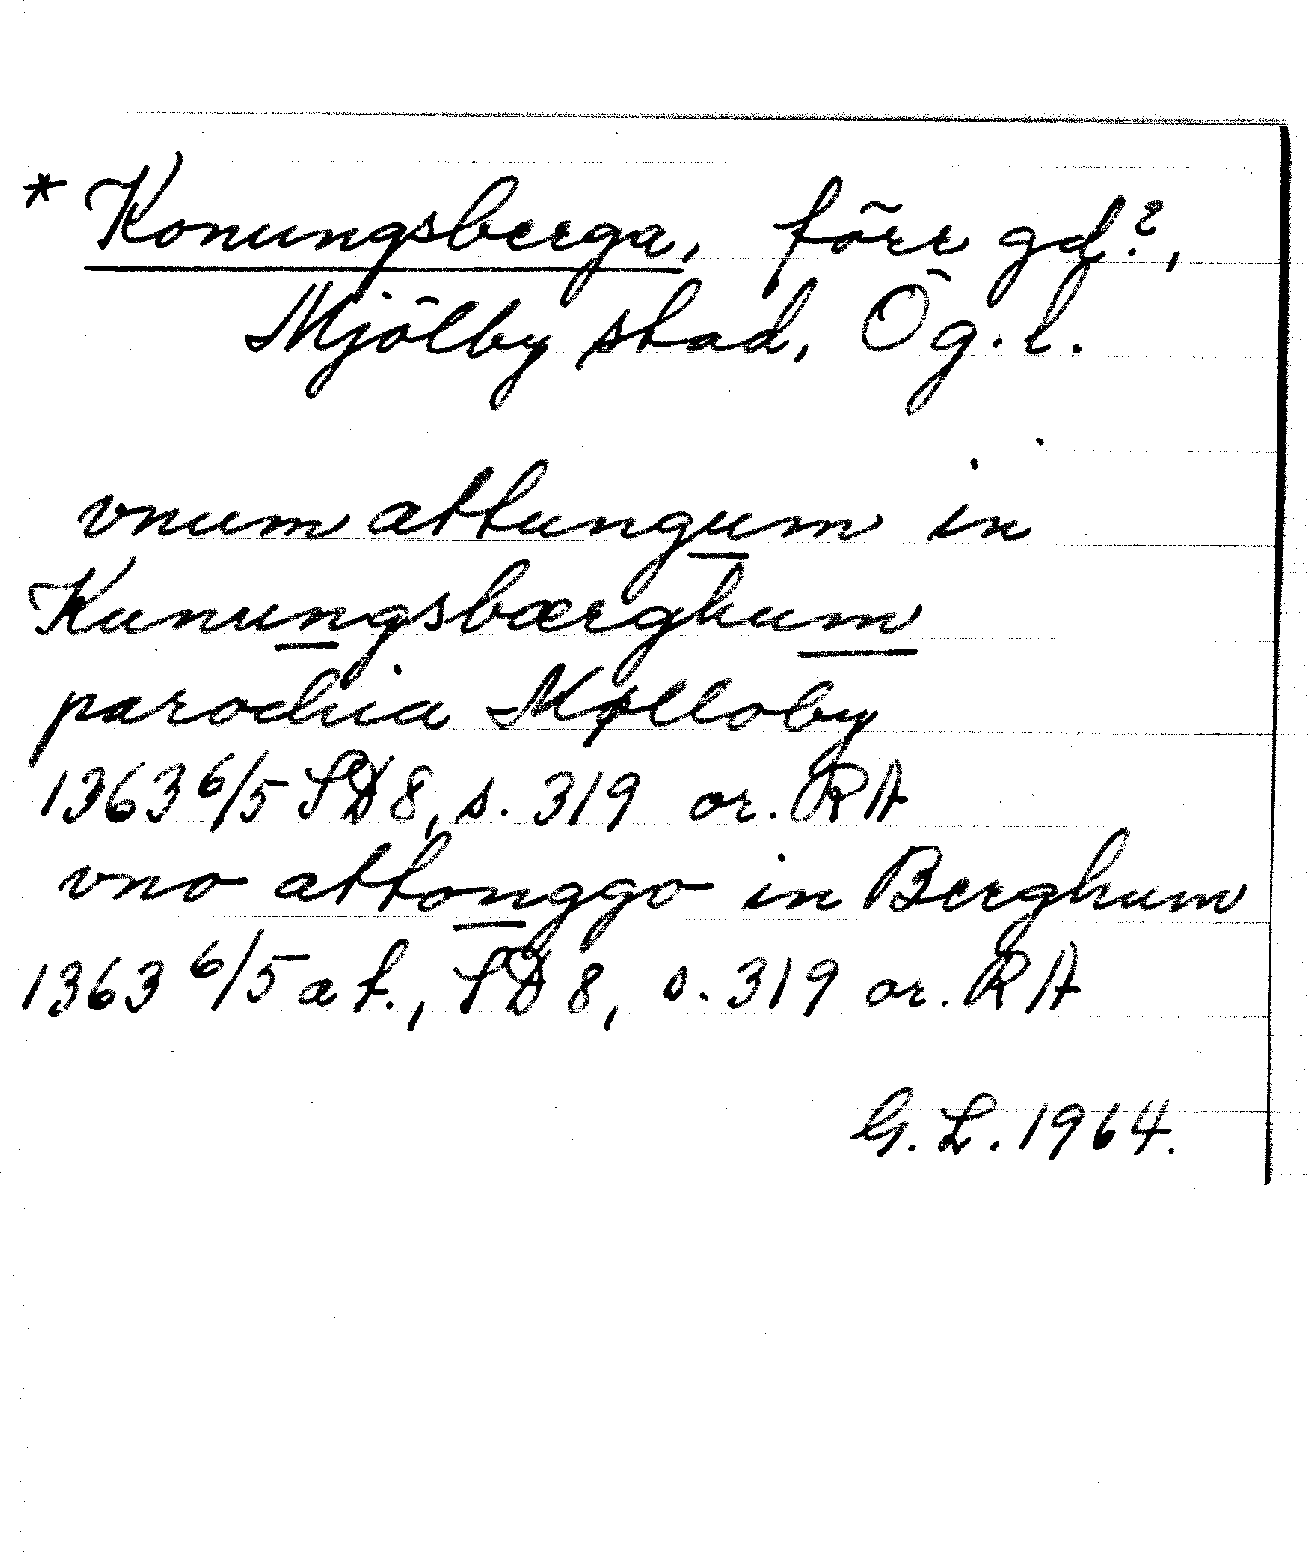 * Konungsberga, förr gd?,
Mjölby stad, Ög. l.
vnum attungum in
Kunungsbærghum
parochia Mølloby
1363 6/5 SD 8, s. 319 or. RA
vno attonggo in Berghum
1363 6/5 a t., SD 8, s. 319 or. RA
G. L. 1964.